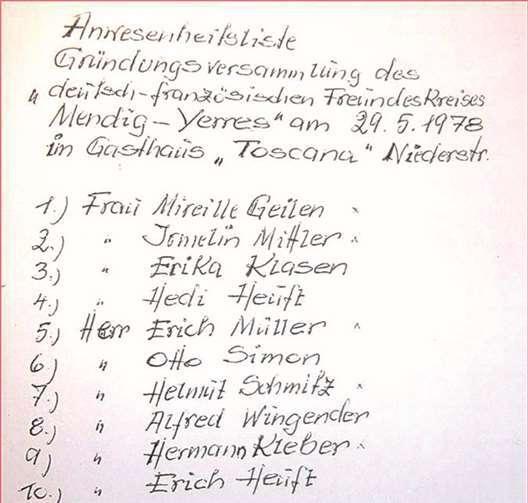 Anwesenheitsliste
Gründungsversammlung des
„deutsch-französischen Freundeskreises
Mendig-Yerres" am 29.5.1978
im Gasthaus „Toscana" Niederstr.
1.) Frau Mireille Geilen x
2.) " Irmelin Mittler x
3.) " Erika Klasen
4.) " Hedi Heuft
5.) Herr Erich Müller x
6.) " Otto Simon
7.) " Helmut Schmitz x
8.) " Alfred Wingender
9.) " Hermann Kleber x
10.) " Erich Heuft